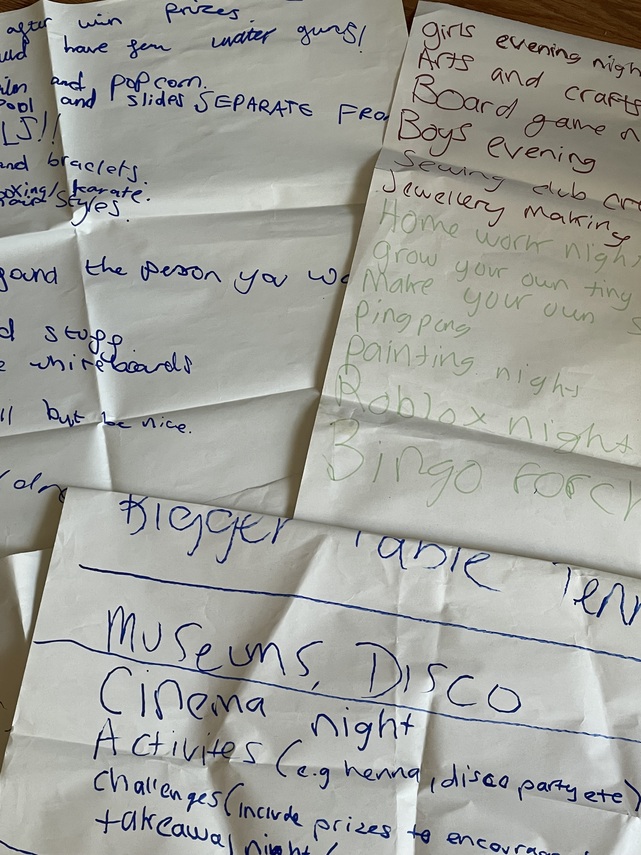 after win prizes.
have fun water guns!
and popcorn.
and slides SEPARATE FRO
LS!!
and braclets.
boxing/karate.
hair styles.
the person you wo
d stuff
whiteboards
ll but be nice.
girls evening nigh
Arts and crafts
Board game n
Boys evening
Sewing club cr
Jewellery making
Home work night
Grow your own tiny
Make your own s
Pingpong
Painting night
Roblox night
Bingo for ch
Bigger Table Tenn
Museums, Disco
Cinema night
Activites (e.g henna, disco party ete)
Challenges (include prizes to encourage
takeawa night